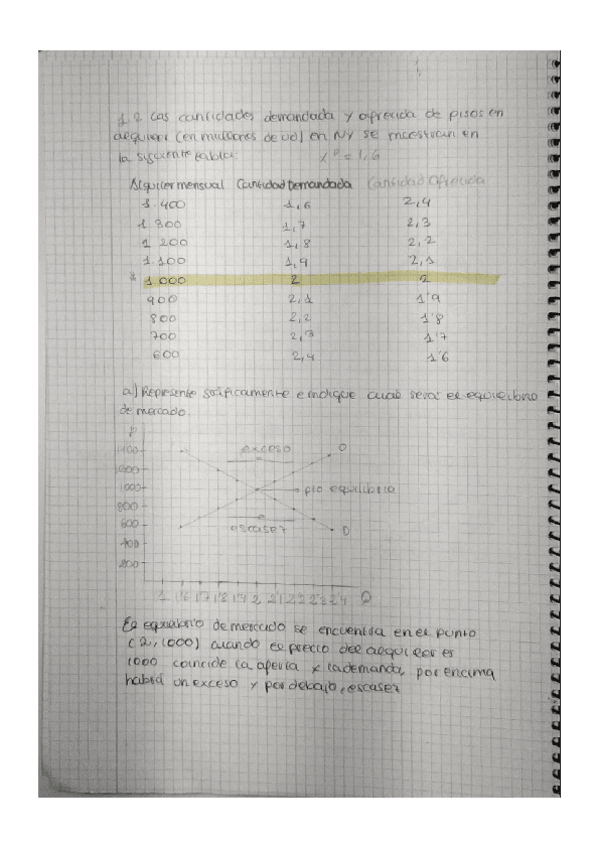 1.2 Las cantidades demandada y ofrecida de pisos en
alquiler (en millones de ud) en NY se muestran en
la siguiente tabla:
Alquiler mensual Cantidad Demandada Cantidad Ofrecida
1.400 1,6 2,4
1 300 1,7 2,3
1 200 1,8 2,2
1.100 1,9 2,1
* 1 000 2 2
900 2,1 1'9
800 2,2 1'8
700 2,3 1'7
600 2,4 1'6
a) Represente gráficamente e indique cual sería el equilibrio
de mercado.
P
1400
1200
1000
800
600
400
200
exceso
O
pto equilibrio
escasez
D
1 1'6 1'7 1'8 1'9 2 2'1 2'2 2'3 2'4 Q
El equilibrio de mercado se encuentra en el punto
(2,1000) cuando el precio del alquiler es
1000 coincide la oferta y la demanda, por encima
habrá un exceso y por debajo, escasez